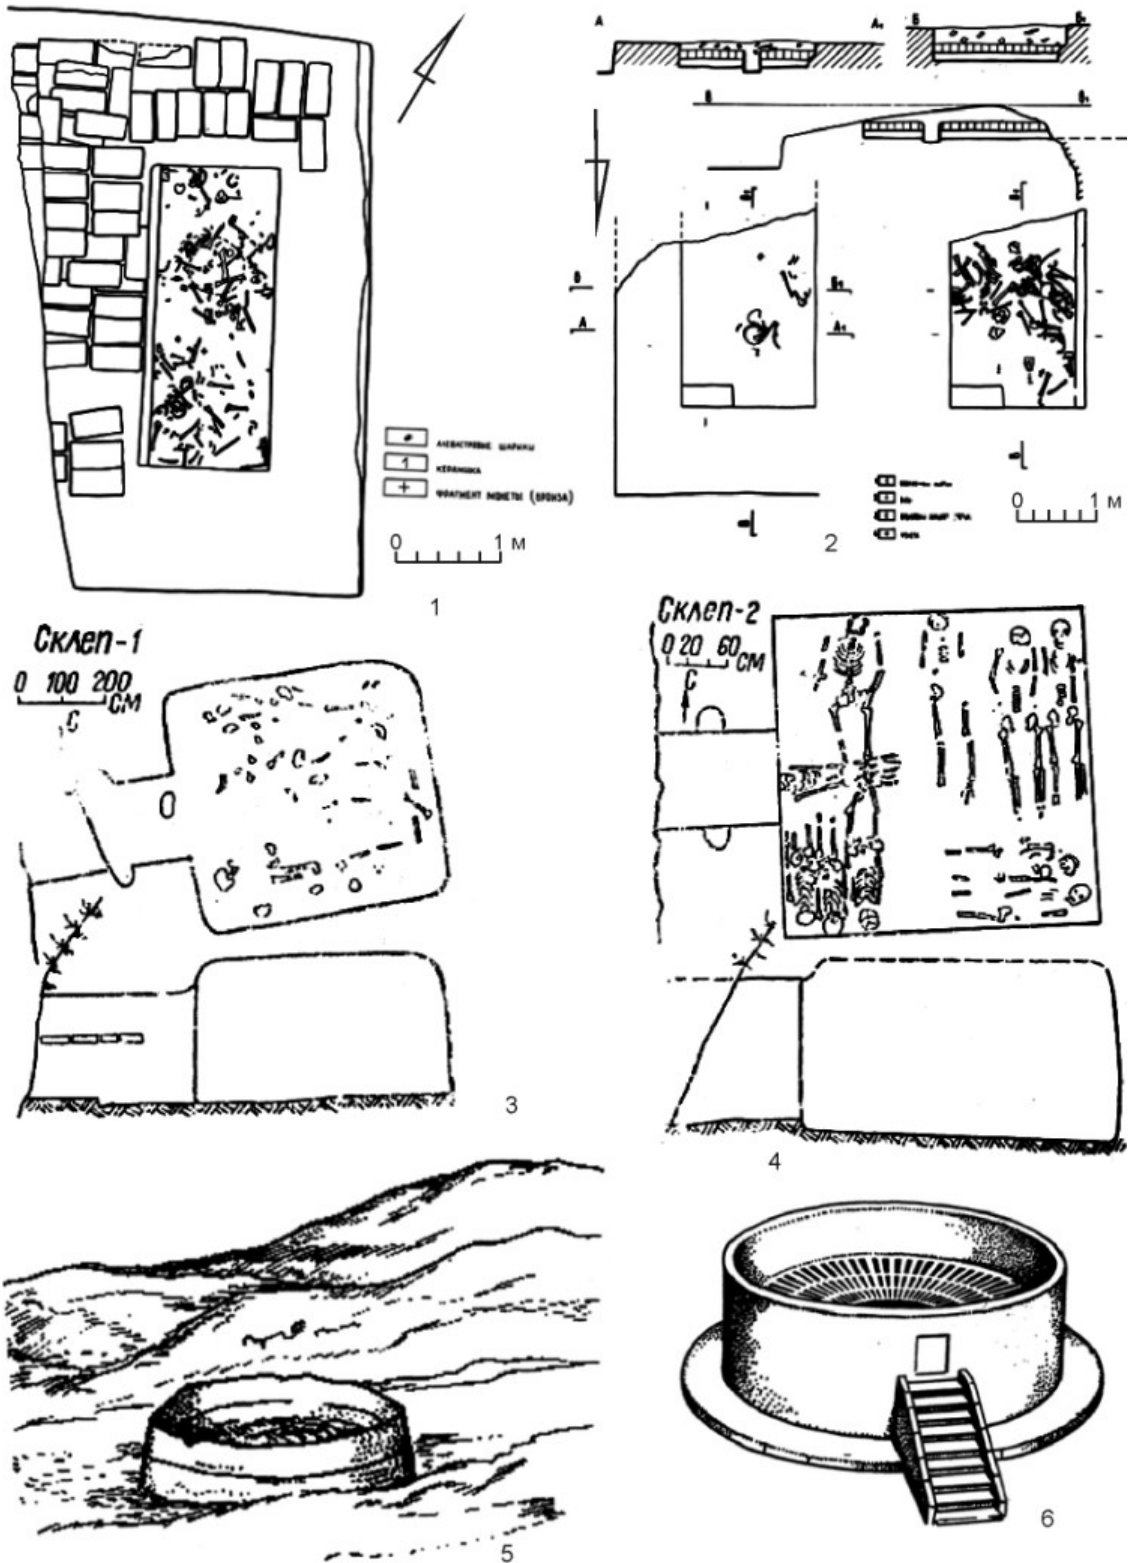 А
А₁
Б
Б₁
В
В₁
АЛЕБАСТРОВЫЕ ШАРИКИ
1 КЕРАМИКА
+ ФРАГМЕНТ МОНЕТЫ (БРОНЗА)
0 1 м
1
Б
Б₁
А
А₁
В
0 1 м
2
Склеп-1
0 100 200
СМ
С
3
Склеп-2
0 20 60
СМ
С
4
5
6